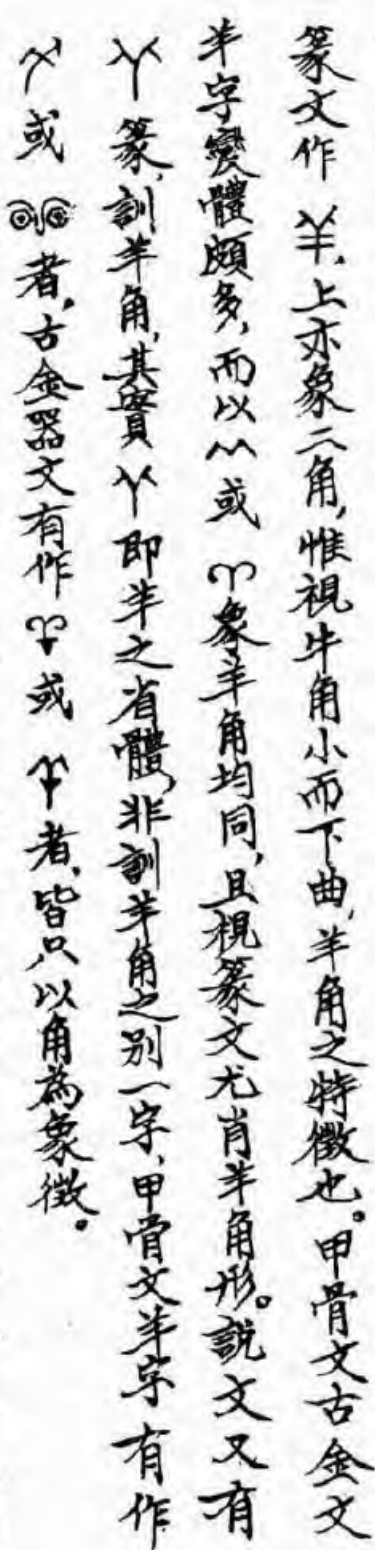 篆文作，上亦象二角，惟視牛角小而下曲，羊角之特徵也。甲骨文古金文
羊字變體頗多，而以或象羊角均同，且視篆文尤肖羊角形。說文又有
篆，訓羊角，其實即羊之省體，非訓羊角之別一字，甲骨文羊字有作
或者，古金器文有作或者，皆只以角為象徵。